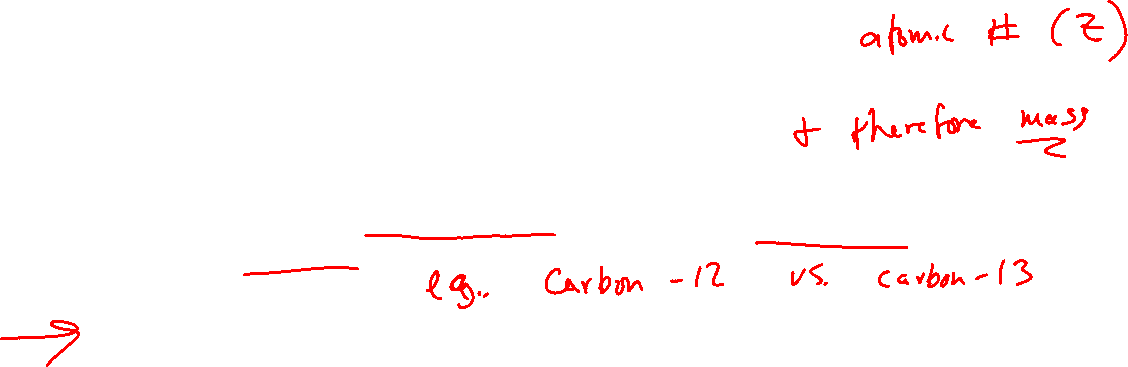 atomic # (Z)
+ therefore mass
eg. Carbon-12 vs. carbon-13